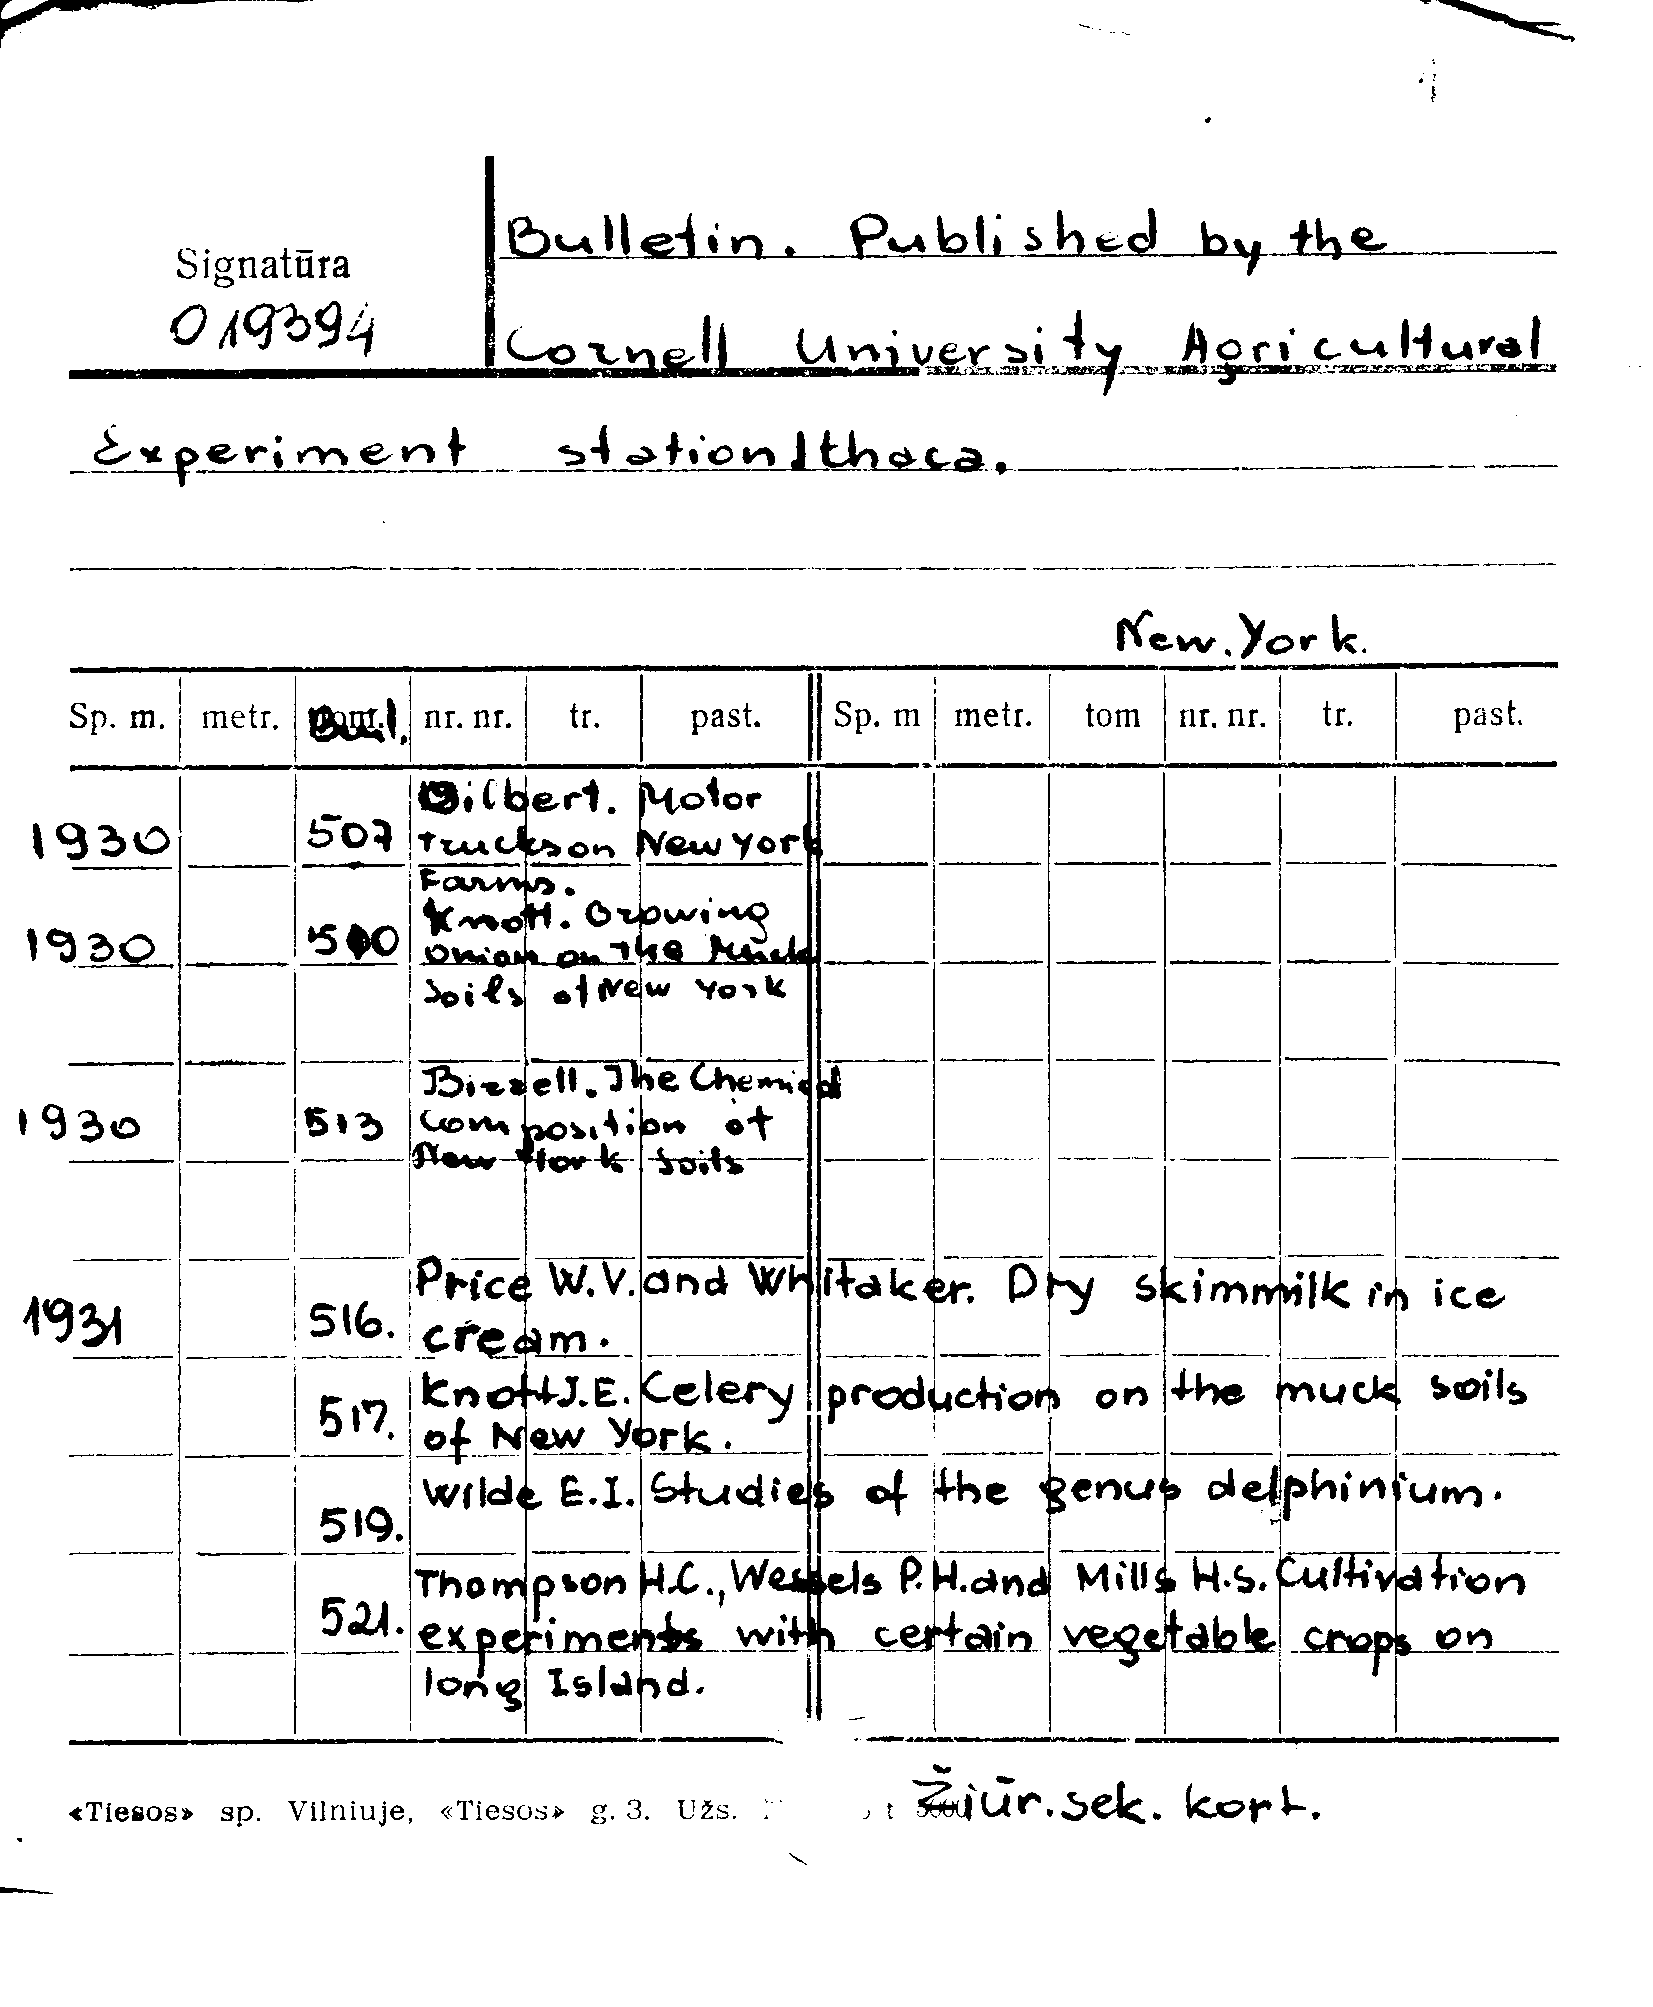 Signatūra
019394
Bulletin. Published by the
Cornell University Agricultural
Experiment station Ithaca.
New.York.
Sp. m. metr. Bul. nr. nr. tr. past. Sp. m metr. tom nr. nr. tr. past.
1930 507 Gilbert. Motor
truckson New York
Farms.
1930 510 Knott. Growing
Onion on The Muck
Soils of New York
1930 513 Bizzell. The Chemical
Composition of
New York Soils
1931 516. Price W.V. and Whitaker. Dry skimmilk in ice
cream.
517. Knott J.E. Celery production on the muck soils
of New York.
519. Wilde E.I. Studies of the genus delphinium.
521. Thompson H.C., Wessels P.H. and Mills H.S. Cultivation
experiments with certain vegetable crops on
long Island.
Žiūr. sek. kort.
«Tiesos» sp. Vilniuje, «Tiesos» g. 3. Užs.